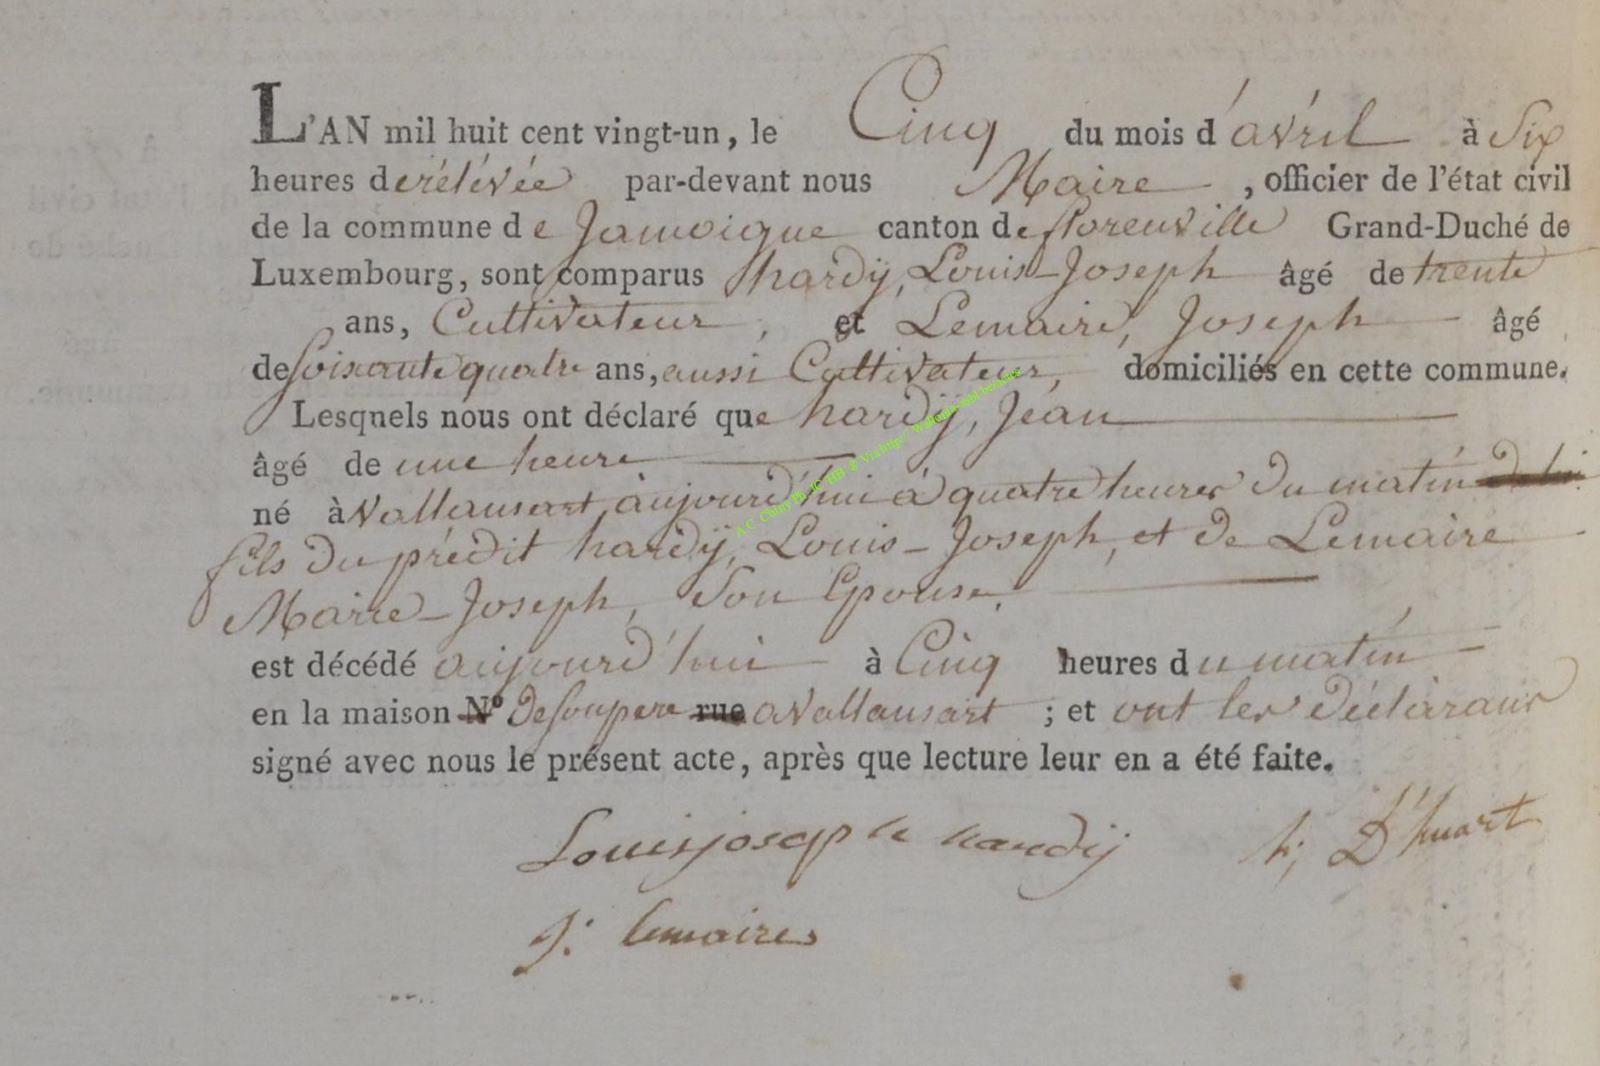 L'AN mil huit cent vingt-un, le Cinq du mois d'avril à Six
heures de rélévée par-devant nous Maire, officier de l'état civil
de la commune de Jamoigne canton de florenville Grand-Duché de
Luxembourg, sont comparus hardÿ, Louis-Joseph âgé de trente
ans, Cultivateur, et Lemaire, Joseph âgé
de Soixante quatre ans, aussi Cultivateur, domiciliés en cette commune.
Lesquels nous ont déclaré que hardÿ, Jean
âgé de une heure
né à Vallansart aujourd'hui à quatre heures du matin
fils du prédit hardÿ, Louis-Joseph, et de Lemaire
Marie-Joseph, Son Epouse,
est décédé aujourd'hui à Cinq heures du matin
en la maison N° de Son pere rue a Vallansart ; et ont les déclarans
signé avec nous le présent acte, après que lecture leur en a été faite.
Louis joseph hardÿ h; D'huart
J: lemaire